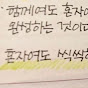 함께여도 혼자여
완성하는 것이다
혼자여도 씩씩하